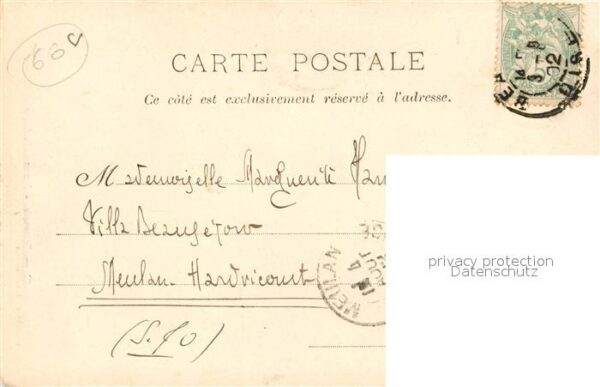 68c
CARTE POSTALE
Ce côté est exclusivement réservé à l'adresse.
Mademoiselle Marguerite
Villa Beauséjour
Meulan-Hardricourt
(S. &O)
MEULAN
4
02
OISE
privacy protection
Datenschutz